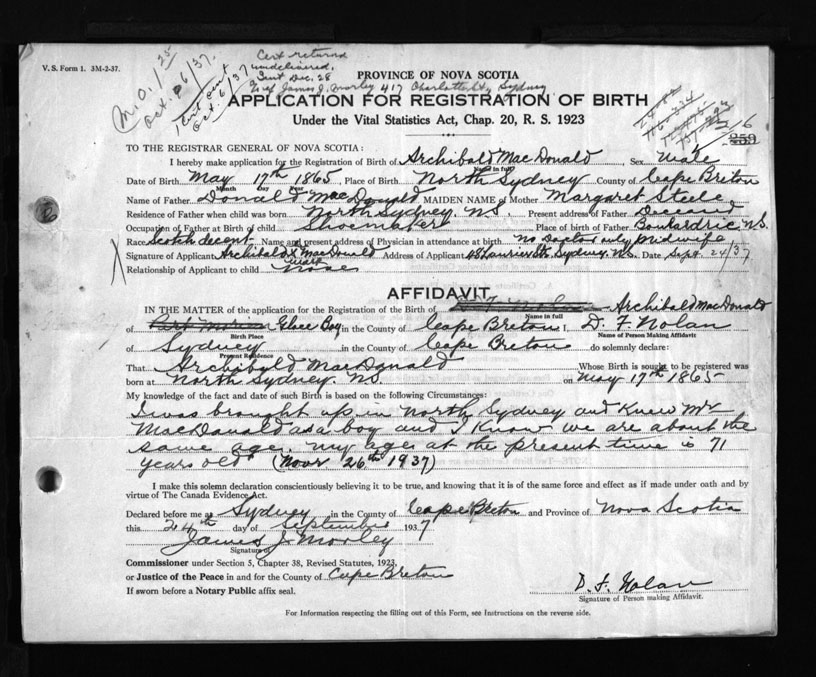 V. S. Form 1. 3M-2-37.
M.O. 1 25
Oct. 26/37.
1 Cert sent
Oct. 6/37
Cert returned
undelivered.
Sent Dec. 28
c/o James J. Morley 417 Charlotte St, Sydney
PROVINCE OF NOVA SCOTIA
APPLICATION FOR REGISTRATION OF BIRTH
Under the Vital Statistics Act, Chap. 20, R. S. 1923
216
259
TO THE REGISTRAR GENERAL OF NOVA SCOTIA:
I hereby make application for the Registration of Birth of Archibald MacDonald Sex Male
Name in full
Date of Birth May 17th 1865 Place of Birth North Sydney County of Cape Breton
Month Day Year
Name of Father Donald MacDonald MAIDEN NAME of Mother Margaret Steele
Residence of Father when child was born North Sydney. N.S. Present address of Father Deceased
Occupation of Father at Birth of child Shoemaker Place of birth of Father Boulardrie N.S.
Race Scotch decent Name and present address of Physician in attendance at birth no Doctor only Midwife
Signature of Applicant Archibald X MacDonald Address of Applicant Laurier St. Sydney. N.S. Date Sept. 24/37
mark
Relationship of Applicant to child None
AFFIDAVIT
IN THE MATTER of the application for the Registration of the Birth of D. F. Nolan Archibald MacDonald
Name in full
of Port Morien Glace Bay in the County of Cape Breton I, D. F. Nolan
Birth Place Name of Person Making Affidavit
of Sydney in the County of Cape Breton do solemnly declare:
Present Residence
That Archibald MacDonald Whose Birth is sought to be registered was
born at North Sydney. N.S. on May 17th 1865
My knowledge of the fact and date of such Birth is based on the following Circumstances:
I was brought up in North Sydney and knew Mr
MacDonald as a boy and I know we are about the
same age. my age at the present time is 71
years old (Novr 26th 1937)
I make this solemn declaration conscientiously believing it to be true, and knowing that it is of the same force and effect as if made under oath and by
virtue of The Canada Evidence Act.
Declared before me at Sydney in the County of Cape Breton and Province of Nova Scotia
this 24th day of September 1937
James J. Morley
Signature
Commissioner under Section 5, Chapter 38, Revised Statutes, 1923,
or Justice of the Peace in and for the County of Cape Breton
If sworn before a Notary Public affix seal.
D. F. Nolan
Signature of Person making Affidavit.
For Information respecting the filling out of this Form, see Instructions on the reverse side.